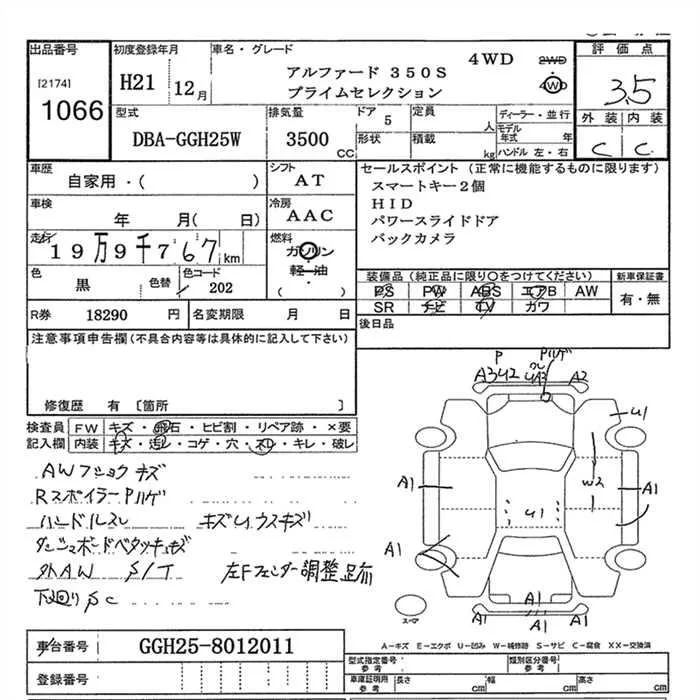 出品番号
[2174]
1066
初度登録年月
H21
12月
車名・グレード
アルファード 350S
プライムセレクション
4WD
2WD
4WD
評価点
3.5
外装 内装
C C
型式
DBA-GGH25W
排気量
3500
CC
ドア
5
形状
定員
人
積載
kg
ディーラー・並行
モデル年式 年
ハンドル 左・右
車歴
自家用・( )
シフト
AT
車検
年 月( 日)
冷房
AAC
走行
19万9千767km
燃料
ガソリン
軽油
( )
色
黒
色替
色コード
202
R券 18290 円
名変期限 月 日
セールスポイント(正常に機能するものに限ります)
スマートキー2個
HID
パワースライドドア
バックカメラ
装備品(純正品に限り○をつけてください)
PS PW ABS エアB AW
SR ナビ TV カワ
新車保証書
有・無
後日品
注意事項申告欄(不具合内容等は具体的に記入して下さい)
修復歴 有 [箇所 ]
検査員
記入欄
FW キズ・飛石・ヒビ割・リペア跡・×要
内装 キズ・汚レ・コゲ・穴・スレ・キレ・破レ
AWフショク キズ
RスポイラーPハゲ
ハンドルスレ キズU,ウスキズ
ダッシュボードベタツキ,キズ
外AW S/T 左Fフェンダー調整足有
下廻りSC
P
A3U2
Pハゲ
UA3
A2
U1
A1
W2
U1
A1
A1
A1
A1
A1
スペアー
A-キズ E-エクボ U-凹み W-補修跡 S-サビ C-腐食 XX-交換済
車台番号
GGH25-8012011
登録番号
型式指定番号
参考
類別区分番号
参考
車庫証明用
参考
長さ cm
幅 cm
高さ cm